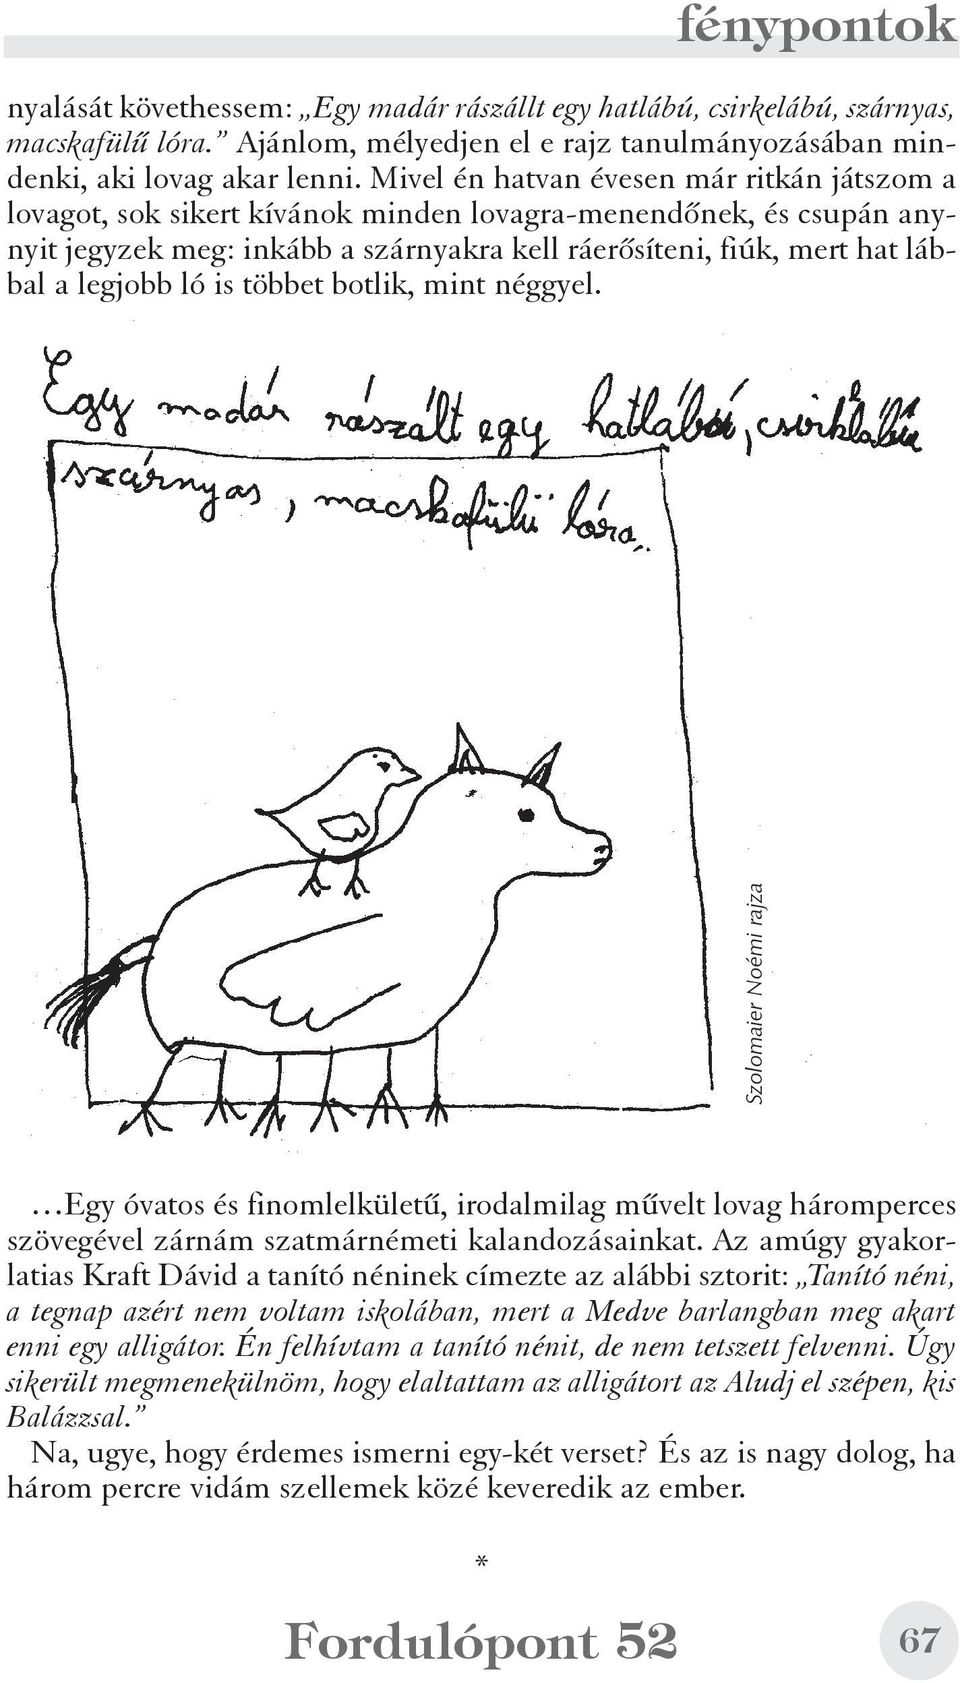 fénypontok
nyalását követhessem: „Egy madár rászállt egy hatlábú, csirkelábú, szárnyas,
macskafülű lóra.” Ajánlom, mélyedjen el e rajz tanulmányozásában min-
denki, aki lovag akar lenni. Mivel én hatvan évesen már ritkán játszom a
lovagot, sok sikert kívánok minden lovagra-menendőnek, és csupán any-
nyit jegyzek meg: inkább a szárnyakra kell ráerősíteni, fiúk, mert hat láb-
bal a legjobb ló is többet botlik, mint néggyel.
Egy madár rászált egy hatlábú, csirkelábú
szárnyas, macskafülü lóra..
Szolomaier Noémi rajza
…Egy óvatos és finomlelkületű, irodalmilag művelt lovag háromperces
szövegével zárnám szatmárnémeti kalandozásainkat. Az amúgy gyakor-
latias Kraft Dávid a tanító néninek címezte az alábbi sztorit: „Tanító néni,
a tegnap azért nem voltam iskolában, mert a Medve barlangban meg akart
enni egy alligátor. Én felhívtam a tanító nénit, de nem tetszett felvenni. Úgy
sikerült megmenekülnöm, hogy elaltattam az alligátort az Aludj el szépen, kis
Balázzsal.”
Na, ugye, hogy érdemes ismerni egy-két verset? És az is nagy dolog, ha
három percre vidám szellemek közé keveredik az ember.
*
Fordulópont 52
67